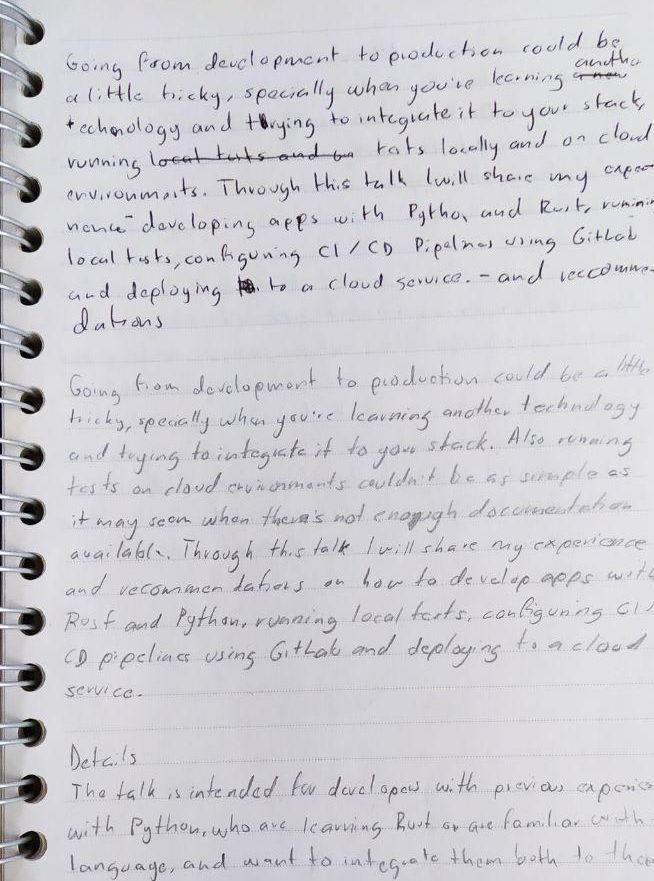 Going from development to production could be
a little tricky, specially when you're learning another
technology and trying to integrate it to your stack,
running tests locally and on cloud
environments. Through this talk I will share my expe
rience developing apps with Python and Rust, runnin
local tests, configuring CI/CD Pipelines using GitLab
and deploying to a cloud service. - and reccommen-
dations
Going from development to production could be a little
tricky, specially when you're learning another technology
and trying to integrate it to your stack. Also running
tests on cloud environments couldn't be as simple as
it may seem when there's not enough documentation
available. Through this talk I will share my experience
and recommendations on how to develop apps with
Rust and Python, running local tests, configuring CI/
CD pipelines using GitLab and deploying to a cloud
service.
Details
The talk is intended for developers with previous experienc
with Python, who are learning Rust or are familiar with
language, and want to integrate them both to their